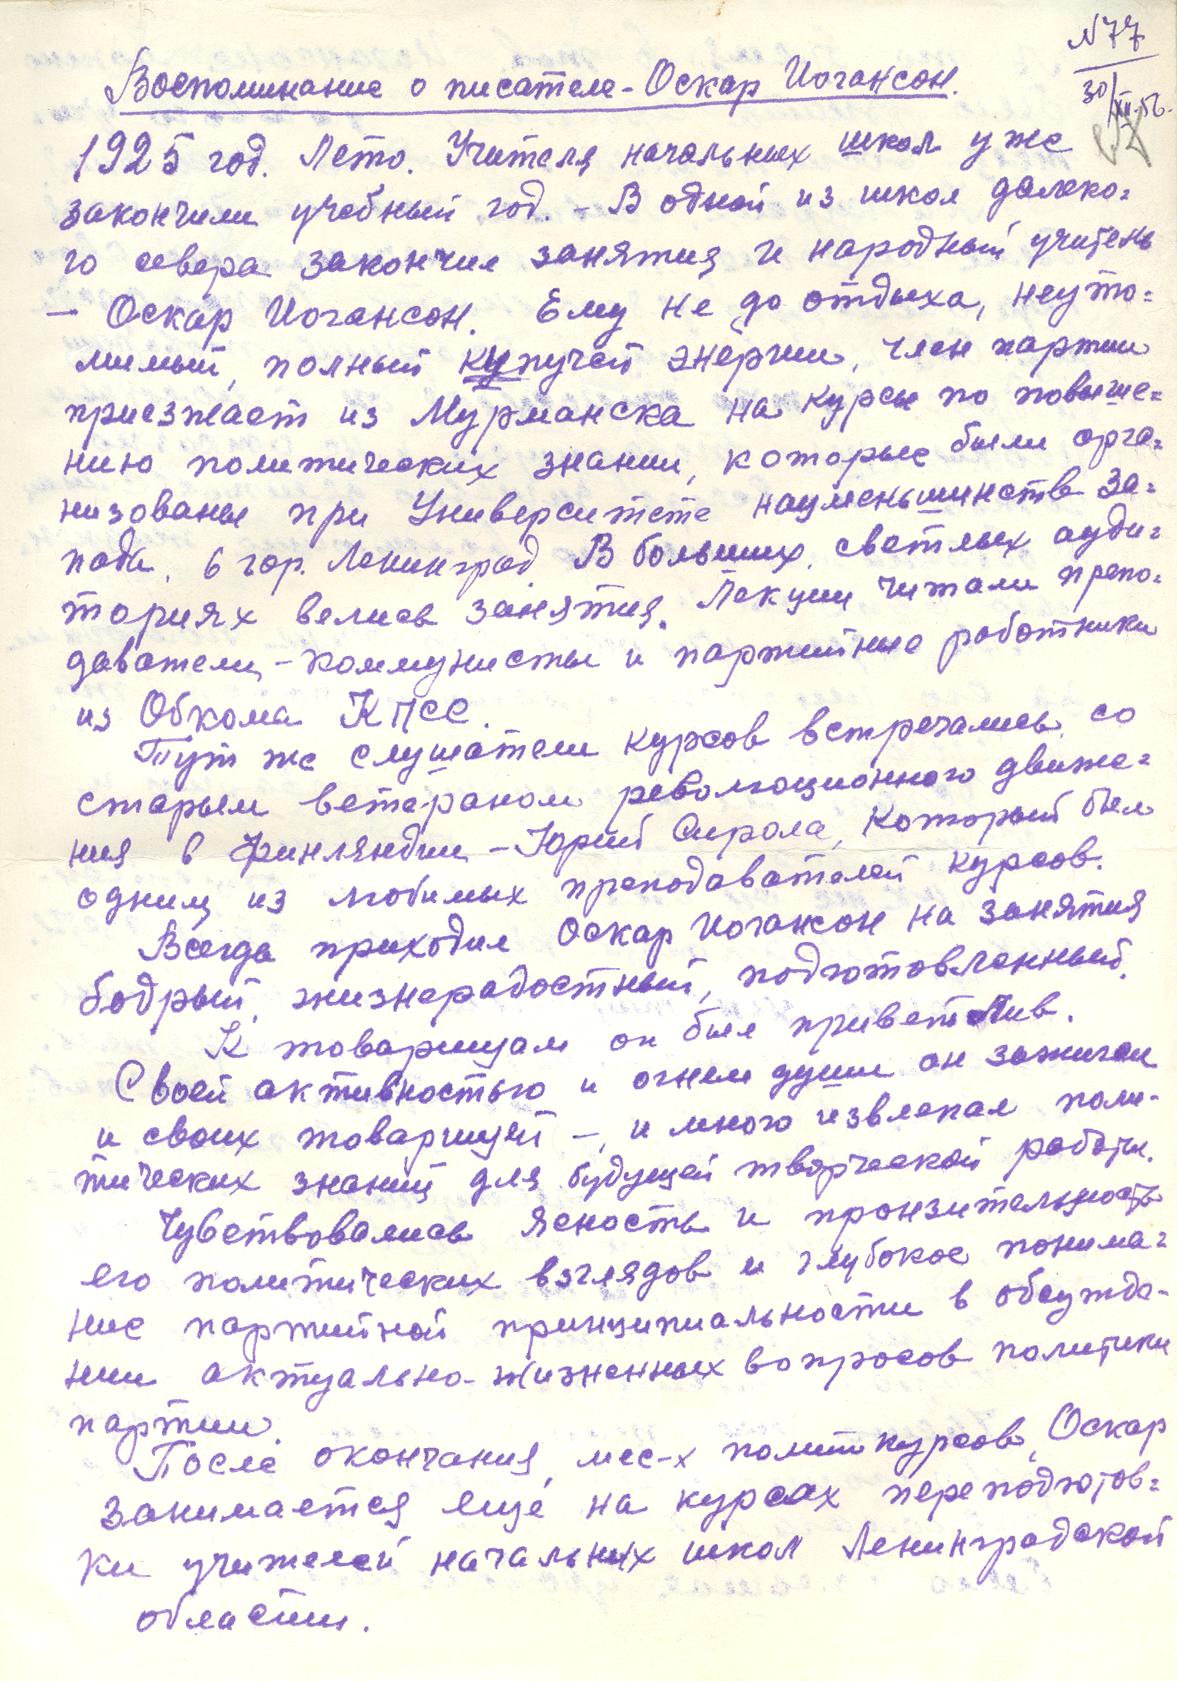 № 77
30/XII-56.
Воспоминание о писателе - Оскар Иогансон.
1925 год. Лето. Учителя начальных школ уже
закончили учебный год. - В одной из школ далеко=
го севера закончил занятия и народный учитель
- Оскар Иогансон. Ему не до отдыха, неуто=
мимый, полный купучей энергии, член партии
приезжает из Мурманска на курсы по повыше=
нию политических знании, которые были орга=
низованы при Университете нацменьшинств За=
пада, в гор. Ленинград. В больших, светлых ауди=
ториях велись занятия. Лекции читали препо=
даватели - коммунисты и партийные работники
из Обкома КПСС.
Тут же слушатели курсов встречались со
старым ветераном революционного движе=
ния в Финляндии - Юрий Сирола, который был
одним из любимых преподавателей курсов.
Всегда приходил Оскар Иогансон на занятия
бодрый, жизнерадостный, подготовленный.
К товарищам он был приветлив.
Своей активностью и огнем души он зажигал
и своих товарищей -, и много извлекал поли-
тических знаний для будущей творческой работы.
Чувствовались ясность и пронзительность
его политических взглядов и глубокое понима=
ние партийной принципиальности в обсужде-
нии актуально-жизненных вопросов политики
партии.
После окончания, мес-х полит курсов, Оскар
занимается ещё на курсах переподготов=
ки учителей начальных школ Ленинградской
области.